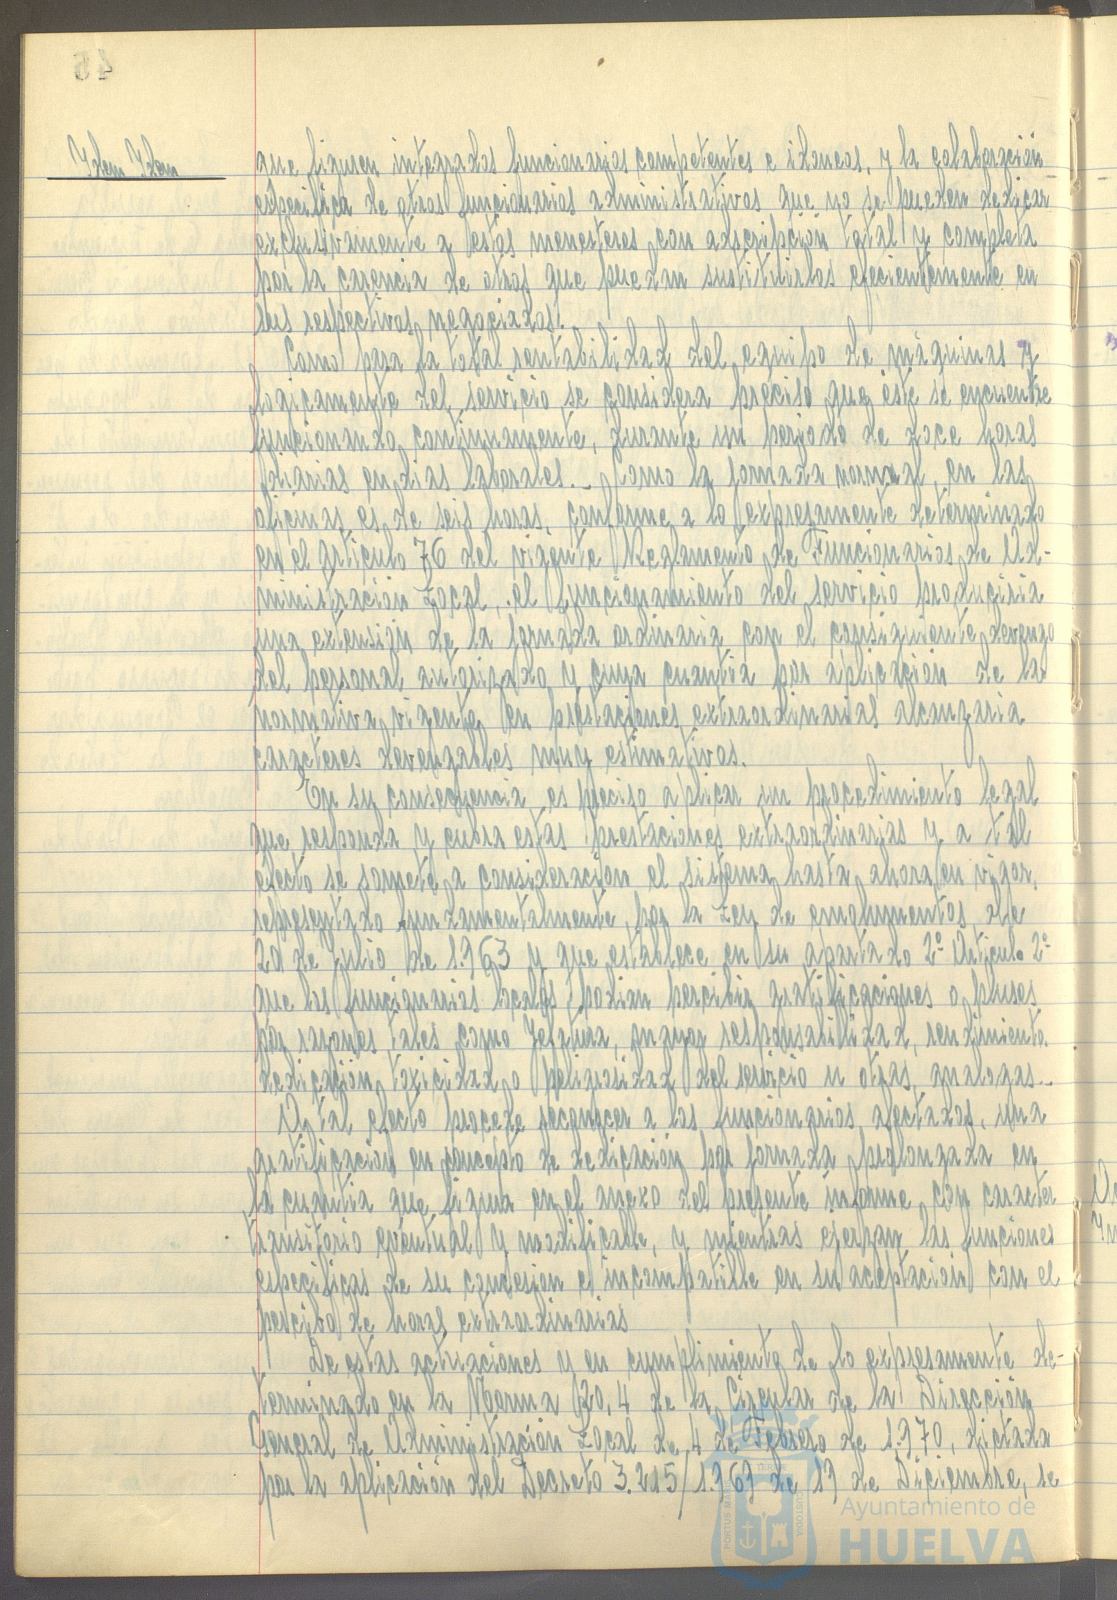 Idem Idem
que figuren integrados funcionarios competentes e idoneos, y la colaboración
específica de otros funcionarios administrativos que ya se pueden dedicar
exclusivamente a estos menesteres con adscripción total y completa
por la carencia de otros que puedan sustituirlos eficientemente en
sus respectivos negociados.
Como para la total rentabilidad del equipo de máquinas y
logicamente del servicio se considera preciso que este se encuentre
funcionando continuamente, durante un periodo de doce horas
diarias en dias laborales.- Como la jornada normal, en las
oficinas es de seis horas, conforme a lo expresamente determinado
en el articulo 76 del vigente Reglamento de Funcionarios de Ad-
ministración Local, el funcionamiento del servicio produciria
una extensión de la jornada ordinaria con el consiguiente devengo
del personal autorizado y cuya cuantia por aplicación de la
normativa vigente en prestaciones extraordinarias alcanzaria
caracteres devengables muy estimativos.
En su consecuencia es preciso aplicar un procedimiento legal
que responda y cubra estas prestaciones extraordinarias y a tal
efecto se somete a consideración el sistema hasta ahora en vigor,
representado fundamentalmente, por la Ley de emolumentos de
20 de julio de 1.963 y que establece en su apartado 2º Articulo 2º
que los funcionarios locales podian percibir gratificaciones o pluses
por razones tales como Jefatura, mayor responsabilidad, rendimiento,
dedicación, toxicidad o peligrosidad del servicio u otras analogas.-
A tal efecto procede reconocer a los funcionarios afectados, una
gratificación en concepto de dedicación por jornada prolongada en
la cuantia que figura en el anexo del presente informe, con caracter
transitorio eventual y modificable, y mientras ejerzan las funciones
especificas de su concesion e incompatible en su aceptacion con el
percibo de horas extraordinarias
De estas actuaciones y en cumplimiento de lo expresamente de-
terminado en la Norma 20,4 de la Circular de la Dirección
General de Administración Local de 4 de Febrero de 1.970, dictada
por la aplicación del Decreto 3.215/1.969 de 19 de Diciembre, se
Ayuntamiento de
HUELVA